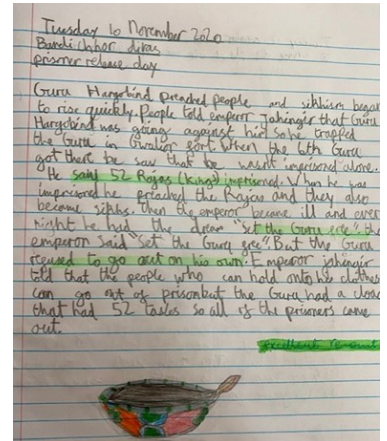 Tuesday 10 November 2020
Bandi chhor divas
prisoner release day
Guru Hargobind preached people and sikhism began
to rise quickly. People told emperor Jahingir that Guru
Hargobind was going against him so he trapped
the Guru in Gwalior fort. When the 6th Guru
got there he saw that he wasn't imprisoned alone.
He said 52 Rajas (kings) imprisoned. When he was
imprisoned he preached the Rajas and they also
became sikhs. Then the emperor became ill and every
night he had the dream "set the Guru free" the
emperor said "set the Guru free" But the Guru
refused to go out on his own. Emperor jahingir
told that the people who can hold onto his clothes
can go out of prison but the Guru had a cloak
that had 52 tasles so all of the prisoners came
out.
excellent